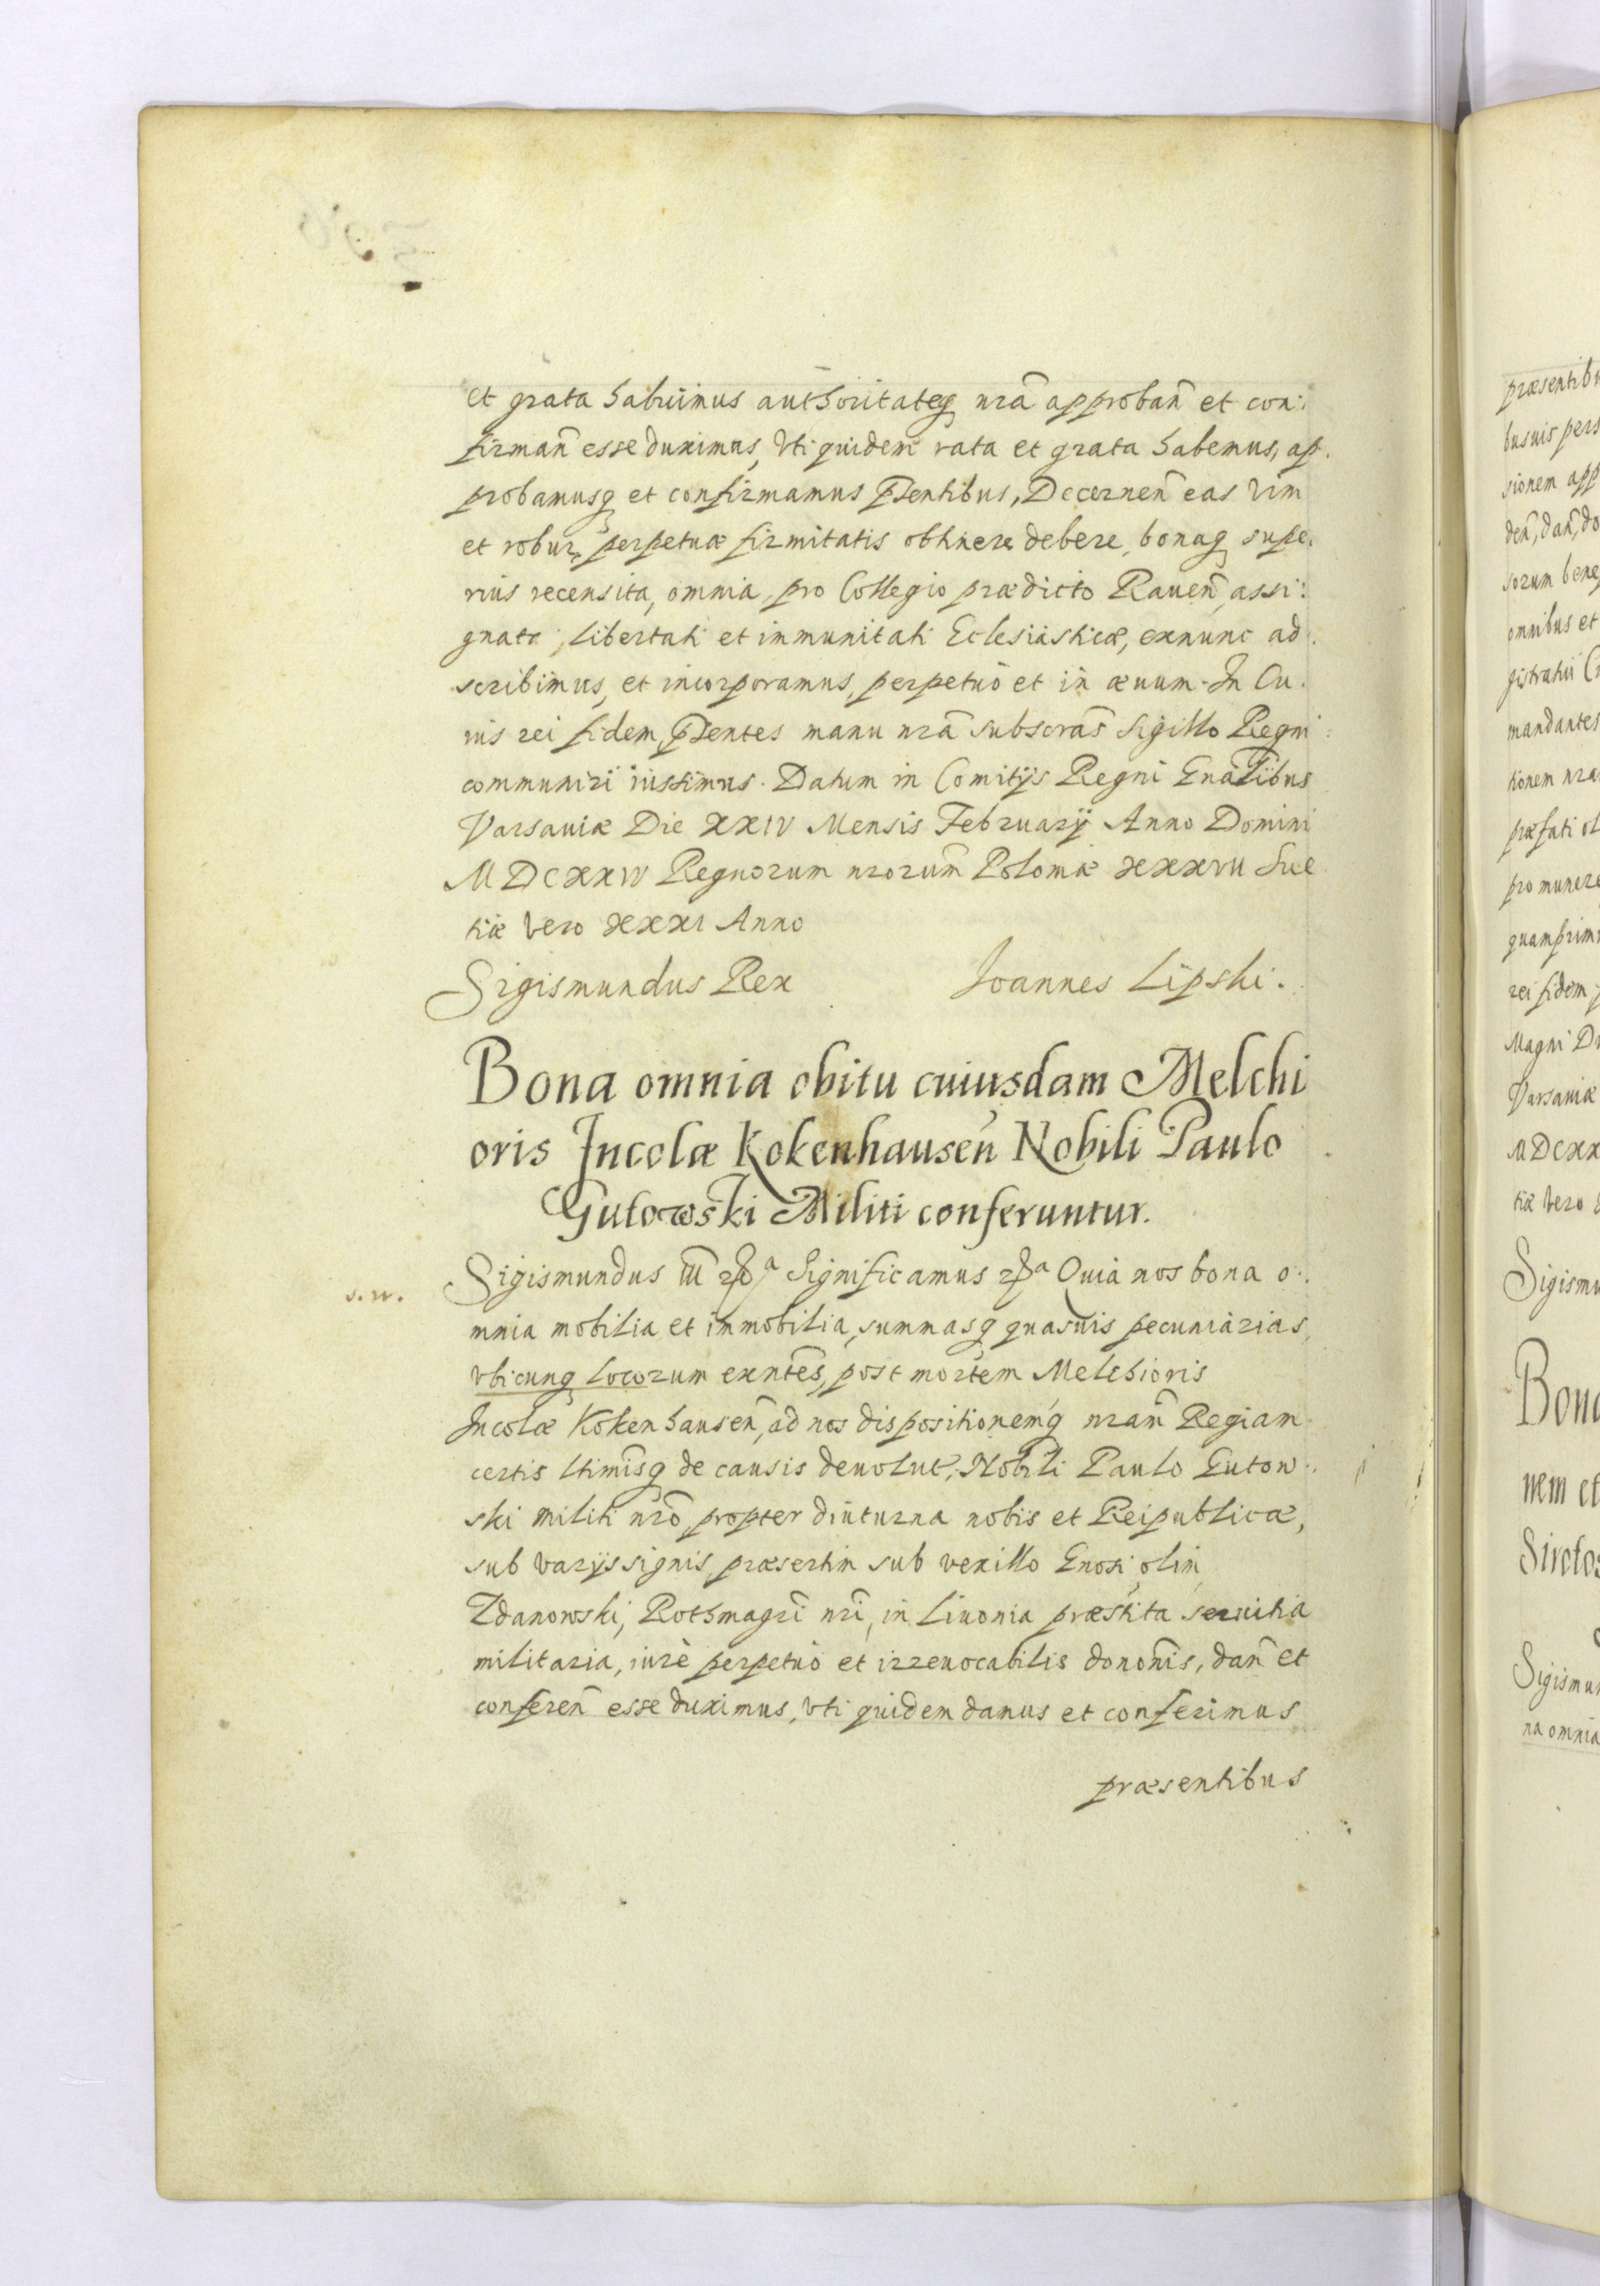 et grata habuimus authoritateq nrã approbañ et con:
firmañ esse duximus, Vti quidem rata et grata habemus, ap.
probamusq et confirmamus pñtentibus, Decerneñ eas Vim
et robur perpetuæ firmitatis obtinere debere, bonaq supe.
rius recensita, omnia, pro Collegio prædicto Raueñ, assi:
gnata, libertati et immunitati Eclesiasticæ, exnunc ad.
scribimus, et incorporamus, perpetuò et in æuum. In Cu.
ius rei fidem, pñtentes manu nrã subscras̃ Sigillo Regni
communiri iussimus. Datum in Comitijs Regni Gnãlibus
Varsauiæ Die XXIV Mensis Februarij Anno Domini
MDCXXIV Regnorum nrorum̃ Poloniæ XXXVII Sue
tiæ Vero XXXI Anno
Sigismundus Rex Joannes Lipski.
Bona omnia obitu cuiusdam Melchi
oris Incolæ Kokenhauseñ Nobili Paulo
Gutowski Militi conferuntur.
s.w.
Sigismundus III Significamus Quia nos bona o.
mnia mobilia et immobilia, summasq quasuis pecuniarias,
vbicunq locorum exñtes, post mortem Melchioris
Incolæ Kokenhauseñ, ad nos dispositionemq nram̃ Regiam
certis ltimisq̃ de causis deuolut, Nobili Paulo Gutow.
ski militi nrõ, propter diuturna nobis et Reipublicæ,
sub varijs signis, præsertim sub vexillo Gnosi olim
Zdanowski, Rothmagrĩ nrĩ, in Liuonia præstita seruitia
militaria, iure perpetuò et irreuocabilis dononĩs, dañ et
confereñ esse duximus, vti quidem damus et conferimus
præsentibus